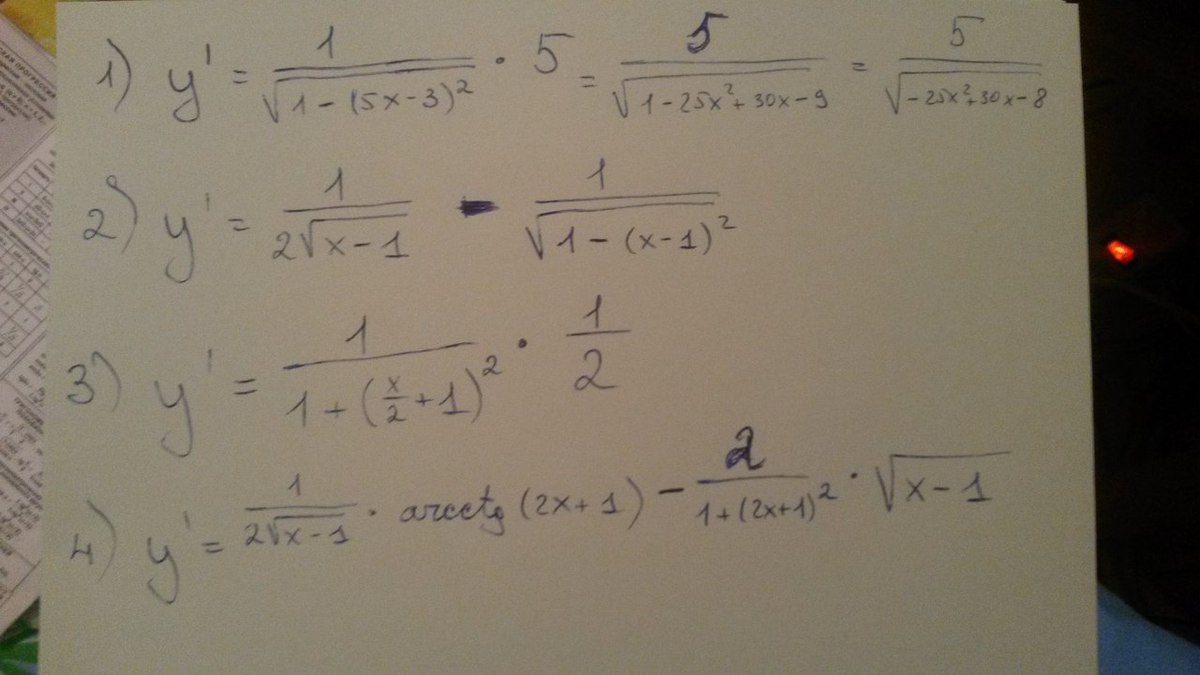 1) y' = 1/√(1-(5x-3)²) · 5 = 5/√(1-25x²+30x-9) = 5/√(-25x²+30x-8)
2) y' = 1/(2√(x-1)) - 1/√(1-(x-1)²)
3) y' = 1/(1+(x/2+1)²) · 1/2
4) y' = 1/(2√(x-1)) · arcctg (2x+1) - 2/(1+(2x+1)²) · √(x-1)